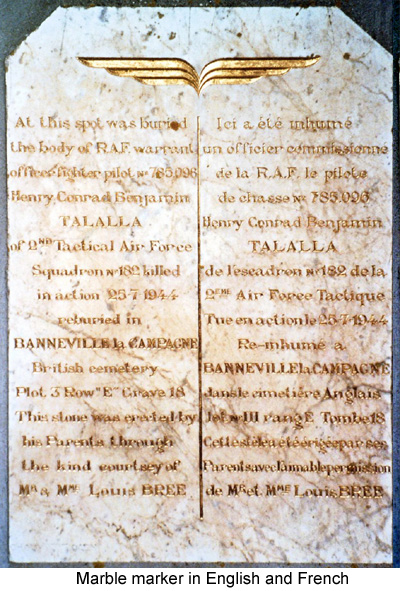 At this spot was buried
the body of R.A.F. warrant
officer fighter pilot No 785096
Henry Conrad Benjamin
TALALLA
of 2ND Tactical Air Force
Squadron No 182 killed
in action 25-7-1944
reburied in
BANNEVILLE la CAMPAGNE
British cemetery
Plot 3 Row "E" Grave 18
This stone was erected by
his Parents through
the kind courtsey of
MR & MME Louis BREE
Ici a été inhumé
un officier commissionne
de la R.A.F. le pilote
de chasse No 785096
Henry Conrad Benjamin
TALALLA
de l'escadron No 182 de la
2EME Air Force Tactique
Tue en action le 25-7-1944
Re-inhumé a
BANNEVILLE la CAMPAGNE
dans le cimetière Anglais
Lot No III rang E Tombe 18
Cette stèle a eté erigée par ses
Parents avec l'aimable permission
de MR et MME Louis BREE
Marble marker in English and French